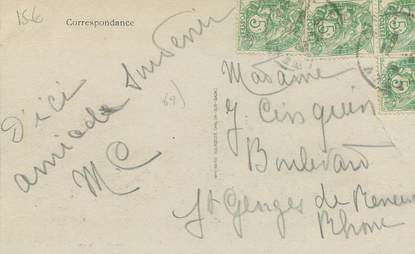 156
Correspondance
D'ici
amicale Souvenir
MC
69)
Madame
J. Cinquin
Boulevard
St Georges de Reneins
Rhone
5
5
5
5